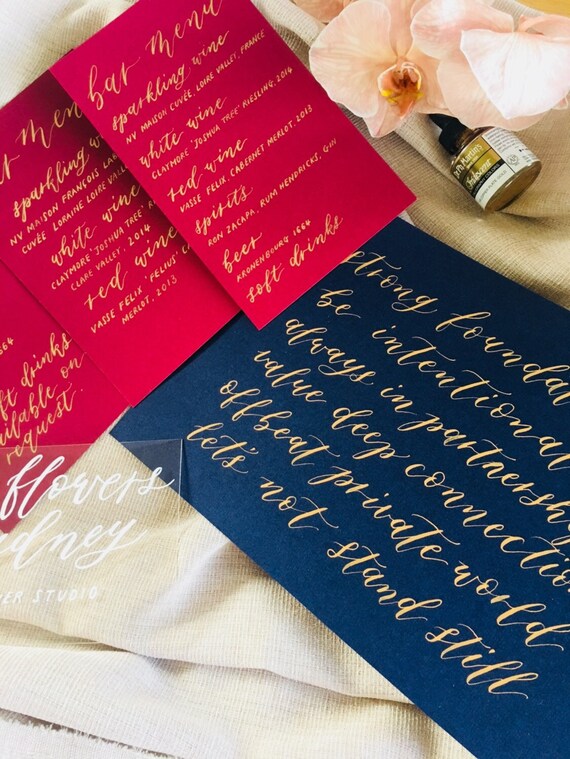 bar menu
sparkling wine
NV MAISON CUVÉE, LOIRE VALLEY, FRANCE
white wine
CLAYMORE 'JOSHUA TREE' RIESLING, 2014
red wine
VASSE FELIX, CABERNET MERLOT, 2013
spirits
RON ZACAPA, RUM HENDRICKS, GIN
beer
KRONENBOURG 1664
soft drinks
menu
sparkling wine
NV MAISON FRANÇOIS
CUVÉE LORAINE LOIRE VALLEY
white wine
CLAYMORE 'JOSHUA TREE'
CLARE VALLEY, 2014
red wine
VASSE FELIX 'FELIUS'
MERLOT, 2013
1664
drinks
available on
request
flowers
STUDIO
strong
be intentional
always in
value deep
offbeat private world
let's not stand still